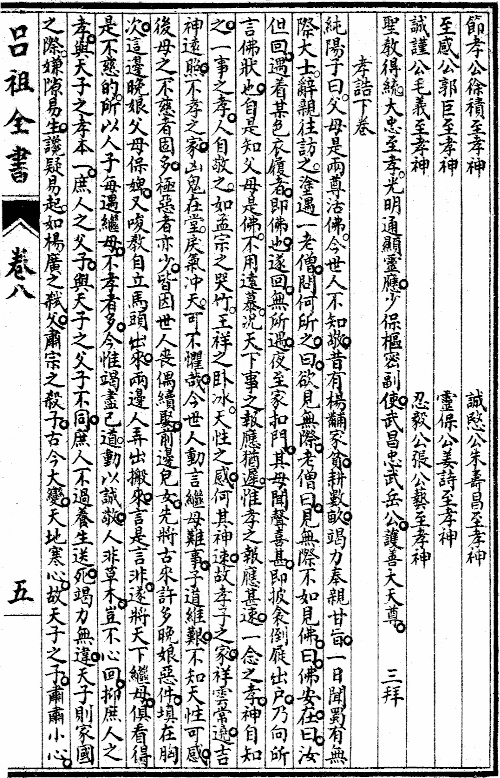 節孝公徐積至孝神　誠愍公朱壽昌至孝神
至感公郭巨至孝神　靈保公姜詩至孝神
誠謹公毛義至孝神　忍毅公張公藝至孝神
聖教得統大忠至孝光明通顯靈應少保樞密副使武昌忠武岳公護善大天尊　三拜
孝誥下卷
純陽子曰父母是兩尊活佛今世人不知敬昔有楊黼家貧耕數畝竭力奉親甘旨一日聞蜀有無
際大士辭親往訪之塗遇一老僧問何所之曰欲見無際老僧曰見無際不如見佛曰佛安在曰汝
但回遇看某色衣履者即佛也遂回無所遇夜至家扣門其母聞聲喜甚即披衾倒屣出戶乃向所
言佛狀也自是知父母是佛不用遠慕況天下事之報應猶遲惟孝之報應甚速一念之孝神自知
之一事之孝人自敬之如孟宗之哭竹王祥之卧冰天性之感何其神速故孝子之家祥雲常遶吉
神遠照不孝之家凶鬼在堂戾氣冲天可不懼哉今世人動言繼母難事子道維艱不知天性可感
後母之不慈者固多極惡者亦少皆因世人喪偶續娶前邊兒女先將古來許多晚娘惡件填在胸
次這邊晚娘父母保媼又唆教自立馬頭出來兩邊人弄出搬來言是言非遂將天下繼母俱看得
是不慈的所以人子每遇繼母不孝者多今惟竭盡己道動以誠敬人非草木豈不心回抑庶人之
孝與天子之孝本一庶人之父子與天子之父子不同庶人不過養生送死竭力無違天子則家國
之際嫌隙易生讒疑易起如楊廣之弒父肅宗之殺子古今大變天地寒心故天子之子肅肅小心
呂祖全書
卷八
五